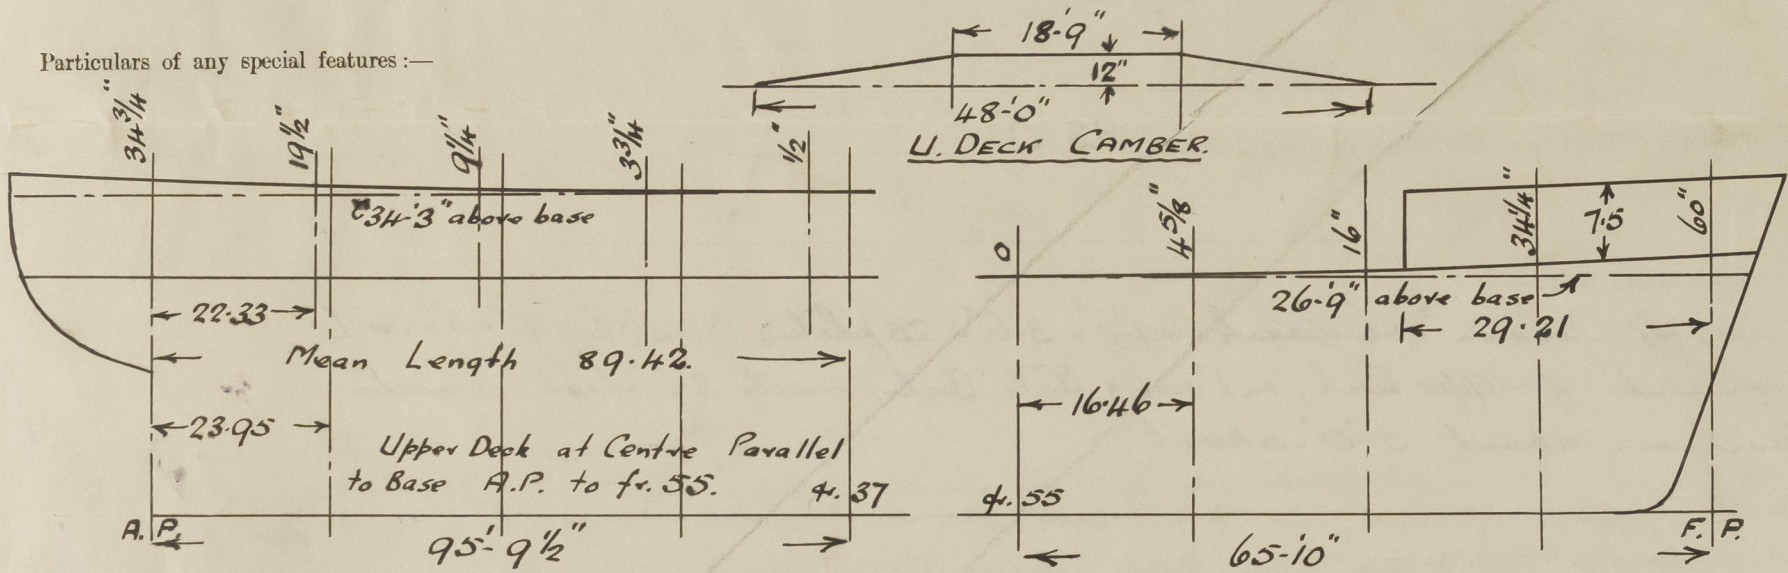 Particulars of any special features :—
18'-9"
12"
48'-0"
U. DECK CAMBER.
34 3/4"
19 1/2"
9 1/4"
3 3/4"
1/2"
34'-3" above base
22·33
Mean Length 89·42.
23·95
Upper Deck at Centre Parallel
to Base A.P. to fr. 55.
fr. 37
A.P.
95'-9 1/2"
0
4 5/8"
16"
34 1/4"
7·5
60"
26'-9" above base
29·21
16·46
fr. 55
F. P.
65'-10"